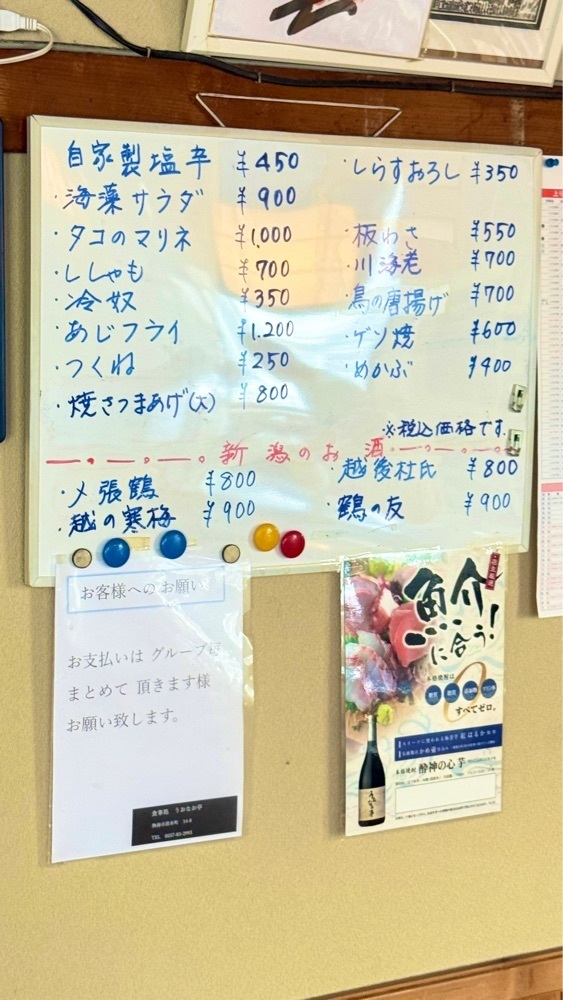 自家製塩辛 ¥450
・海藻サラダ ¥900
・タコのマリネ ¥1,000
・ししゃも ¥700
・冷奴 ¥350
・あじフライ ¥1,200
・つくね ¥250
・焼さつまあげ(大) ¥800
・しらすおろし ¥350
・板わさ ¥550
・川海老 ¥700
・鳥の唐揚げ ¥700
・ゲソ焼 ¥600
・めかぶ ¥400
※税込価格です。
新潟のお酒
・〆張鶴 ¥800
・越の寒梅 ¥900
・越後杜氏 ¥800
・鶴の友 ¥900
お客様へのお願い
お支払いは グループ毎
まとめて 頂きます様
お願い致します。
食事処 うおなか亭
TEL
魚介
に合う!
本格焼酎は
糖質
すべてゼロ。
本格焼酎 酔神の心 芋